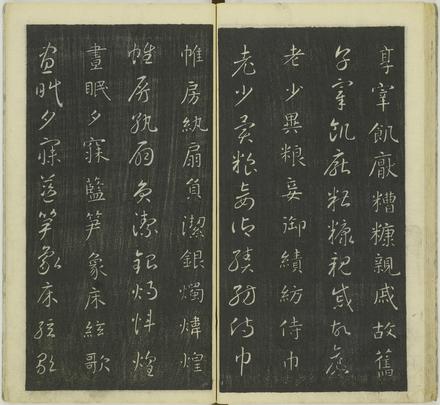 享宰飢厭糟糠親戚故舊
享宰飢厭糟糠親戚故舊
老少異粮妾御績紡侍巾
老少異粮妾御績紡侍巾
帷房紈扇員潔銀燭煒煌
帷房紈扇員潔銀燭煒煌
晝眠夕寐藍笋象床絃歌
晝眠夕寐藍笋象床絃歌